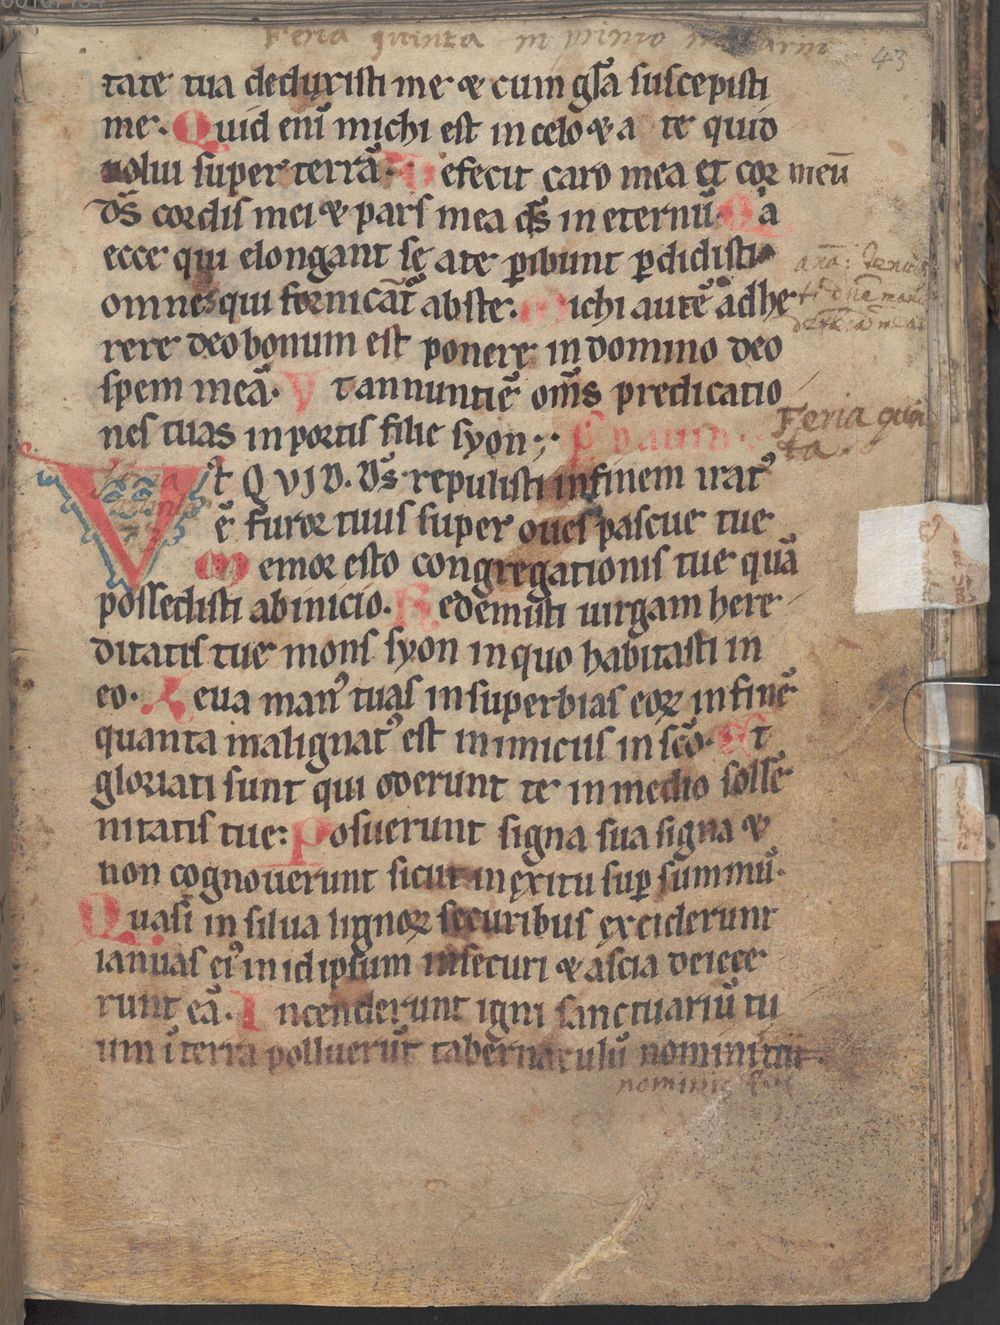 Feria quinta in primo
43
tate tua deduxisti me & cum gl̄a suscepisti
me. Quid enī michi est in celo & a te quid
uolui super terrā. Defecit caro mea et cor meū
d̄s cordis mei & pars mea d̄s in eternū. Qa
ecce qui elongant se a te ꝑibunt ꝑdidisti
omnes qui fornicāt abs te. Michi autē adhe
rere deo bonum est ponere in domino deo
spem meā. Vt annuntiē om̄s predicatio
nes tuas in portis filie syon;
Feria quin
ta.
Vt QVID. Ds̄ repulisti in finem iratꝰ
ē furor tuus super oues pascue tue
Memor esto congregationis tue quā
possedisti ab inicio. Redemisti uirgam here
ditatis tue mons syon in quo habitasti in
eo. Leua manꝰ tuas in superbias eoꝝ in finē
quanta malignatꝰ est inimicus in sc̄o. Et
gloriati sunt qui oderunt te in medio sollē
nitatis tue: Posuerunt signa sua signa &
non cognouerunt sicut in exitu suꝑ summū.
Quasi in silua lignoꝝ securibus exciderunt
ianuas eiꝰ in id ipsum in securi & ascia deiece
runt eā. Incenderunt igni sanctuariū tu
um ī terra polluerūt tabernaculū nominis tui
nominis tui